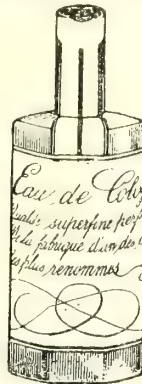 Eau de Colog
Qualé superfine perf
de la fabrique d'un des
les plus renommés